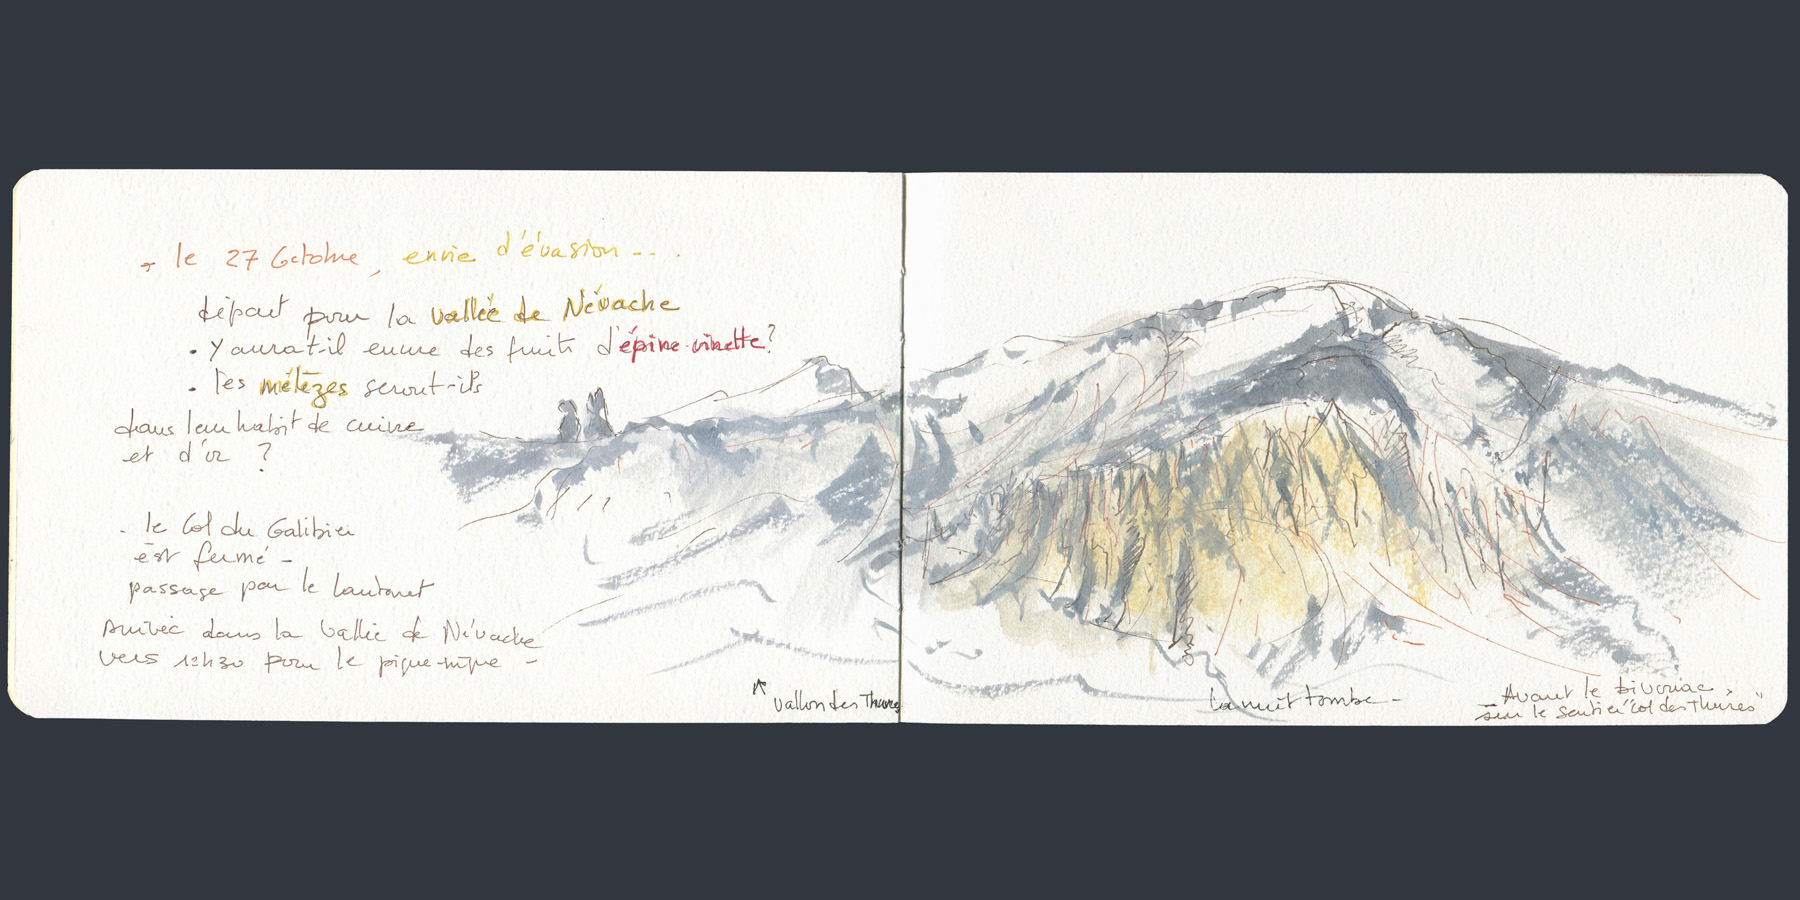 → le 27 Octobre, envie d'évasion --.
départ pour la vallée de Névache
• Y aura-t-il encore des fruits d'épine-vinette ?
• les mélèzes seront-ils
dans leur habit de cuivre
et d'or ?
- le Col du Galibier
est fermé -
passage par le Lautaret
Arrivée dans la Vallée de Névache
vers 12h30 pour le pique-nique -
↑ Vallon des Thures
La nuit tombe -
Avant le bivouac,
sur le sentier "col des Thures"